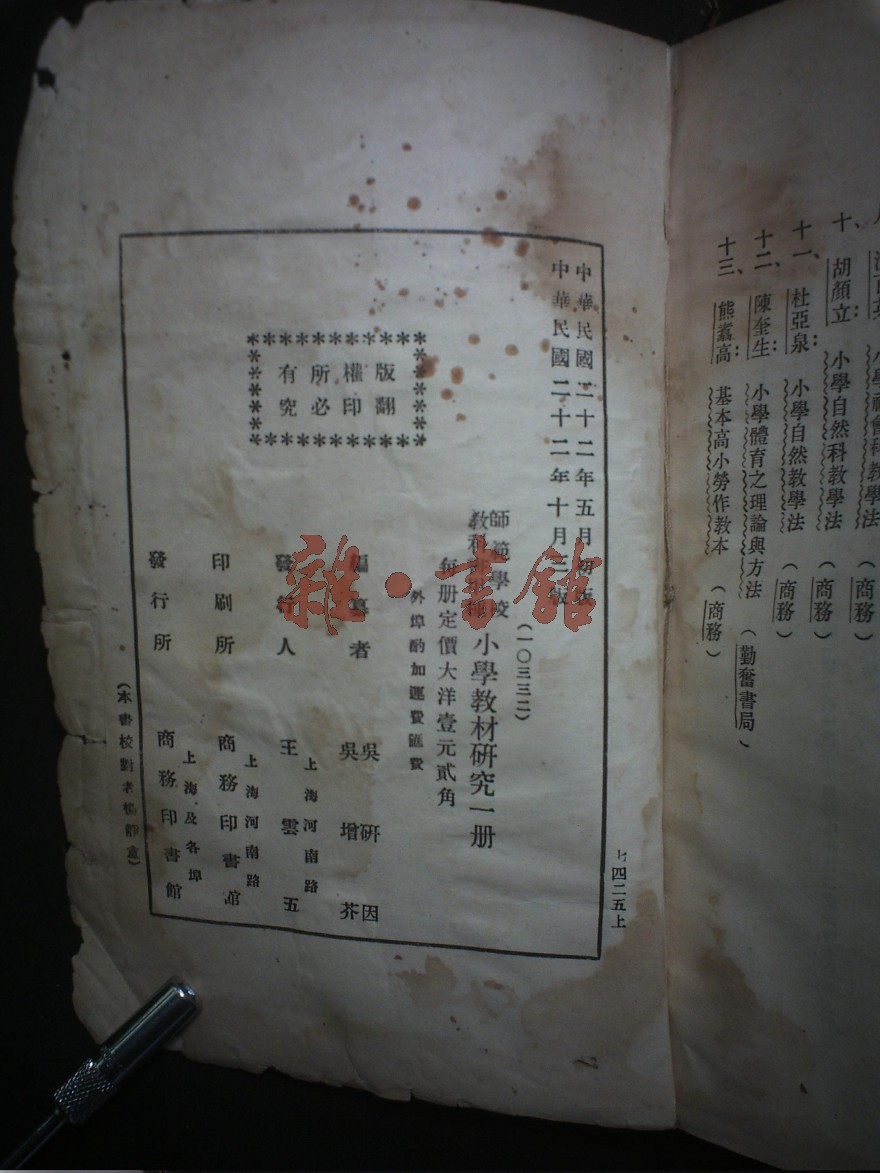 小學社會科教學法（商務）
十、胡顏立：小學自然科教學法（商務）
十一、杜亞泉：小學自然教學法（商務）
十二、陳奎生：小學體育之理論與方法（勤奮書局）
十三、熊翥高：基本高小勞作教本（商務）
四二五上
中華民國二十二年五月初版
中華民國二十二年十月三版
（一〇三三二）
師範學校
教科書
小學教材研究一册
每册定價大洋壹元貳角
外埠酌加運費匯費
版權所有
翻印必究
編纂者
吳研因
吳增芥
發行人
上海河南路
王雲五
印刷所
上海河南路
商務印書館
發行所
上海及各埠
商務印書館
（本書校對者楊靜盦）
雜·書館